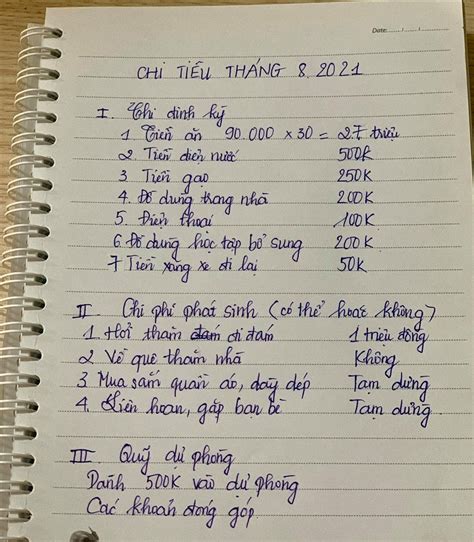 Date: ...... / ...... / ......
CHI TIÊU THÁNG 8.2021
I. Chi định kỳ
1. Tiền ăn 90.000 x 30 = 2.7 triệu
2. Tiền điện nước 500K
3 Tiền gạo 250K
4. Đồ dùng trong nhà 200K
5. Điện thoại 100K
6. Đồ dùng học tập bổ sung 200K
7 Tiền xăng xe đi lại 50K
II. Chi phí phát sinh (có thể hoặc không)
1. Hỏi thăm đám đi đám 1 triệu đồng
2. Về quê thăm nhà Không
3. Mua sắm quần áo, dày dép Tạm dừng
4. Liên hoan, gặp bạn bè Tạm dừng
III Quỹ dự phòng
Dành 500K vào dự phòng
Các khoản đóng góp